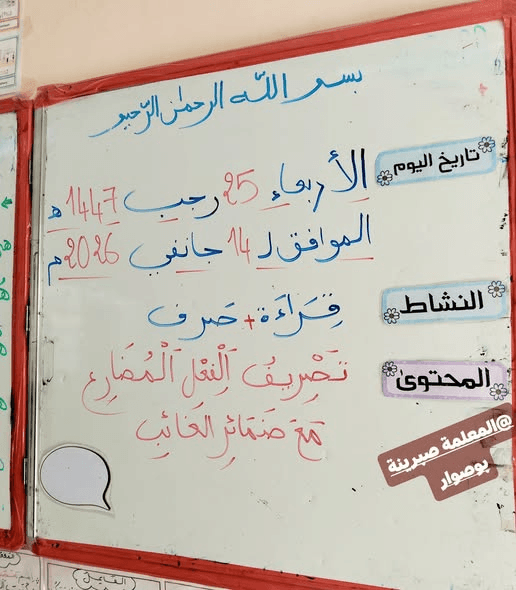 بسم الله الرحمن الرحيم
تاريخ اليوم
الأربعاء 25 رجب 1447 ه
الموافق ل 14 جانفي 2026 م
النشاط
قِرَاءَة + صَرف
المحتوى
تَصْرِيفُ اَلْفِعْلِ اَلْمُضَارِعِ
مَعَ ضَمَائِرِ اَلْغَائِبِ
@المعلمة صبرينة
بوصوار